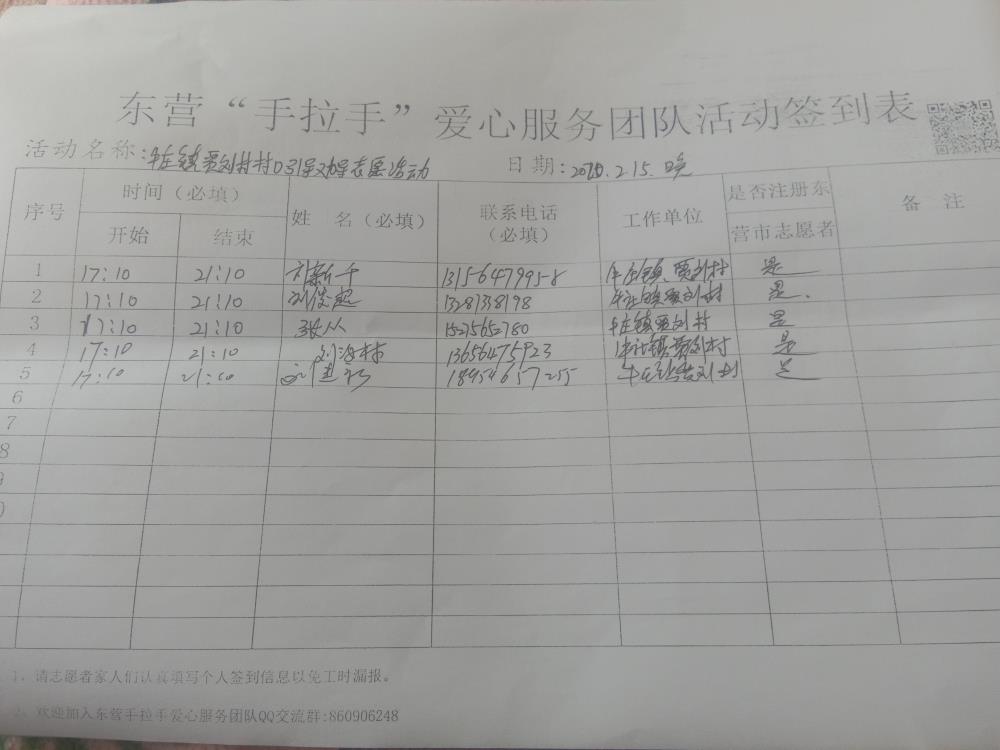 东营“手拉手”爱心服务团队活动签到表
活动名称:牛庄镇贾刘村村口引导劝导志愿活动 日期:2020.2.15.晚
序号 时间（必填） 姓 名（必填） 联系电话（必填） 工作单位 是否注册东营市志愿者 备 注
开始 结束
1 17:10 21:10 刘新千 13156479958 牛庄镇贾刘村 是
2 17:10 21:10 13281338198 牛庄镇贾刘村 是.
3 17:10 21:10 张从 15275652780 牛庄镇贾刘村 是
4 17:10 21:10 刘海林 13656475923 牛庄镇贾刘村 是
5 17:10 21:10 18954657255 牛庄镇贾刘村 是
6
7
8
1、请志愿者家人们认真填写个人签到信息以免工时漏报。
2、欢迎加入东营手拉手爱心服务团队QQ交流群:860906248